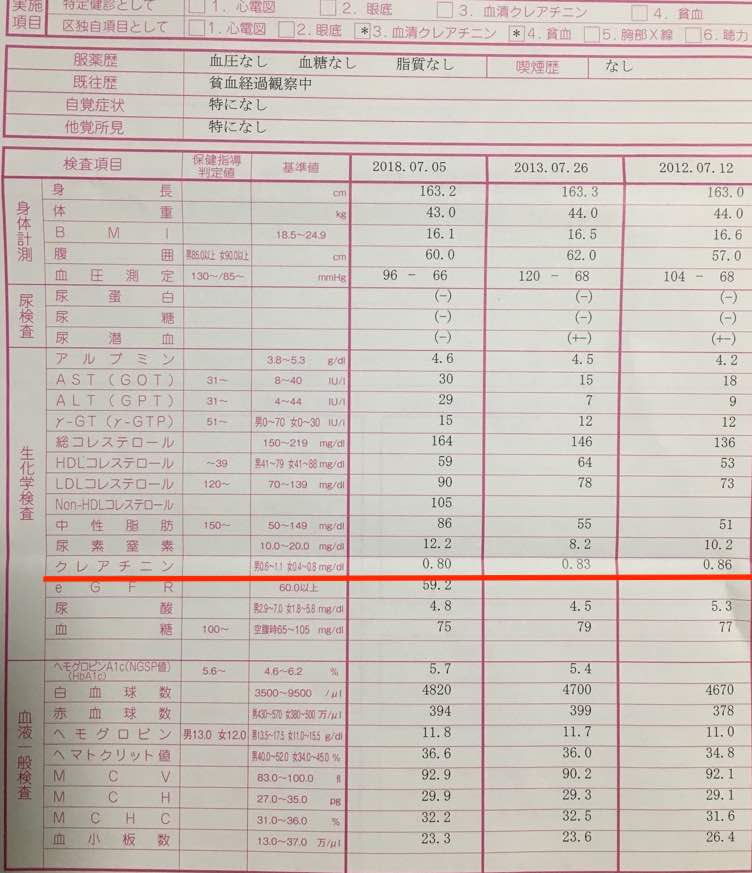 実施 特定健診として □1．心電図 □2．眼底 □3．血清クレアチニン □4．貧血
項目 区独自項目として □1．心電図 □2．眼底 *3．血清クレアチニン *4．貧血 □5．胸部X線 □6．聴力
服薬歴 血圧なし 血糖なし 脂質なし 喫煙歴 なし
既往歴 貧血経過観察中
自覚症状 特になし
他覚所見 特になし
検査項目 保健指導判定値 基準値 2018.07.05 2013.07.26 2012.07.12
身体計測
身長 cm 163.2 163.3 163.0
体重 kg 43.0 44.0 44.0
BMI 18.5～24.9 16.1 16.5 16.6
腹囲 男85.0以上 女90.0以上 cm 60.0 62.0 57.0
血圧測定 130～/85～ mmHg 96 － 66 120 － 68 104 － 68
尿検査
尿蛋白 (-) (-) (-)
尿糖 (-) (-) (-)
尿潜血 (-) (+-) (+-)
生化学検査
アルブミン 3.8～5.3 g/dl 4.6 4.5 4.2
AST(GOT) 31～ 8～40 IU/l 30 15 18
ALT(GPT) 31～ 4～44 IU/l 29 7 9
γ-GT(γ-GTP) 51～ 男0～70 女0～30 IU/l 15 12 12
総コレステロール 150～219 mg/dl 164 146 136
HDLコレステロール ～39 男41～79 女41～88 mg/dl 59 64 53
LDLコレステロール 120～ 70～139 mg/dl 90 78 73
Non-HDLコレステロール 105
中性脂肪 150～ 50～149 mg/dl 86 55 51
尿素窒素 10.0～20.0 mg/dl 12.2 8.2 10.2
クレアチニン 男0.6～1.1 女0.4～0.8 mg/dl 0.80 0.83 0.86
eGFR 60.0以上 59.2
尿酸 男2.9～7.0 女1.8～5.8 mg/dl 4.8 4.5 5.3
血糖 100～ 空腹時65～105 mg/dl 75 79 77
血液一般検査
ヘモグロビンA1c(NGSP値)(HbA1c) 5.6～ 4.6～6.2 % 5.7 5.4
白血球数 3500～9500 /μl 4820 4700 4670
赤血球数 男430～570 女380～500 万/μl 394 399 378
ヘモグロビン 男13.0 女12.0 男13.5～17.5 女11.0～15.5 g/dl 11.8 11.7 11.0
ヘマトクリット値 男40.0～52.0 女34.0～45.0 % 36.6 36.0 34.8
MCV 83.0～100.0 fl 92.9 90.2 92.1
MCH 27.0～35.0 pg 29.9 29.3 29.1
MCHC 31.0～36.0 % 32.2 32.5 31.6
血小板数 13.0～37.0 万/μl 23.3 23.6 26.4